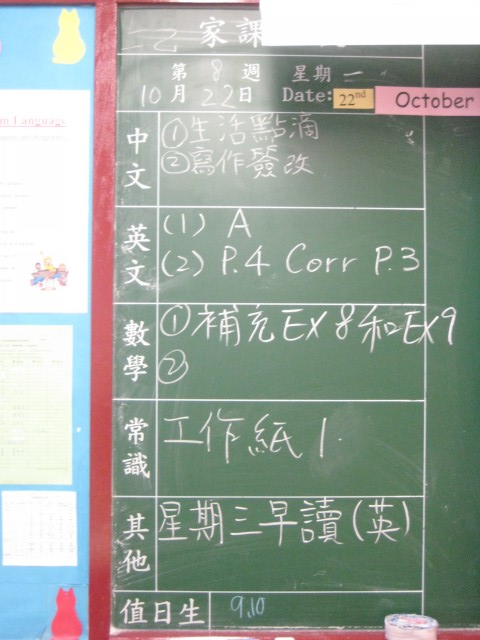 家課
第8週 星期一
10月22日 Date: 22nd October
中文
①生活點滴
②寫作簽改
英文
(1) A
(2) P.4 Corr P.3
數學
①補充EX8和EX9
②
常識
工作紙1.
其他
星期三早讀(英)
值日生 9,10
Language